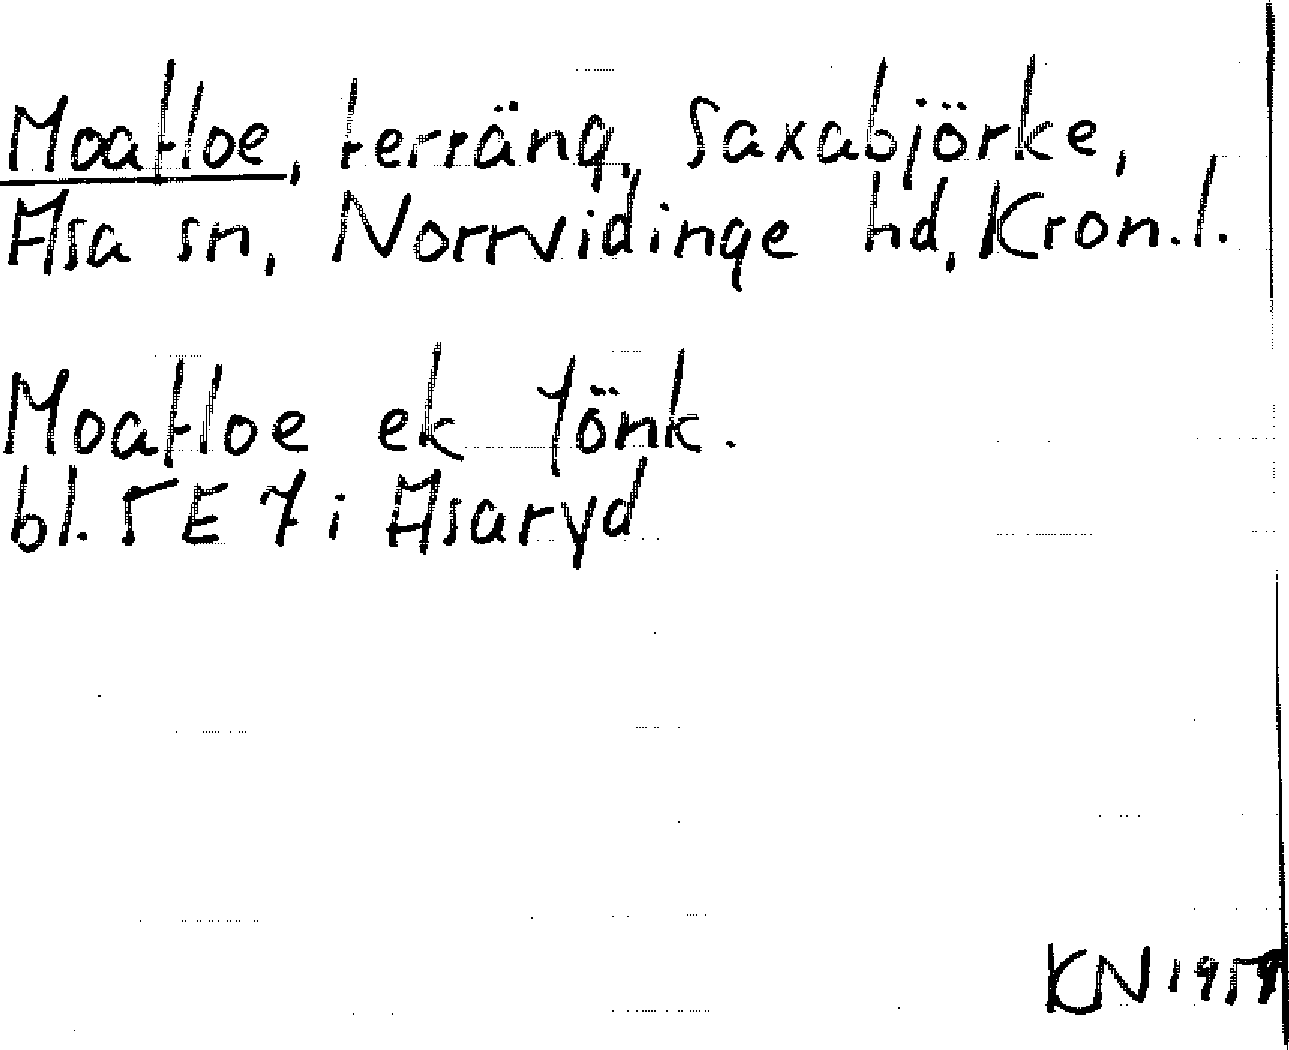 Moafloe, terräng, Saxabjörke,
Asa sn, Norrvidinge hd, Kron.l.
Moafloe ek Jönk.
bl. 5E 7 i Asaryd
KN 1959